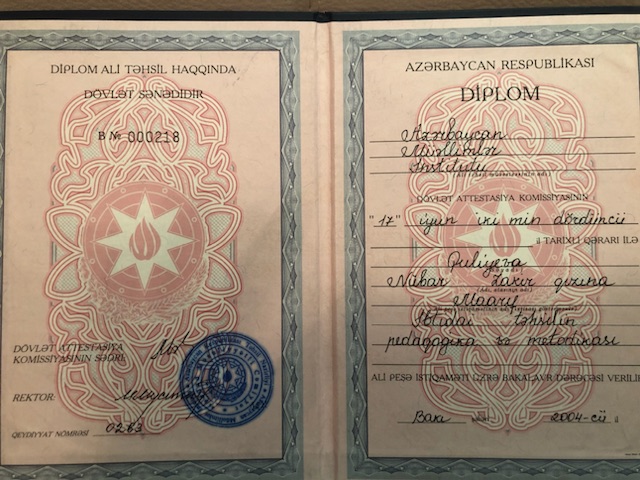 DİPLOM ALİ TƏHSİL HAQQINDA
DÖVLƏT SƏNƏDİDİR
B № 000218
DÖVLƏT ATTESTASİYA
KOMİSSİYASININ SƏDRİ
REKTOR
QEYDİYYAT NÖMRƏSİ 0263
AZƏRBAYCAN RESPUBLİKASI
DİPLOM
Azərbaycan
Müəllimlər
İnstitutu
DÖVLƏT ATTESTASİYA KOMİSSİYASININ
"17" iyun iki min dördüncü
il TARİXLİ QƏRARI İLƏ
Quliyeva
Nübar Zakir qızına
Maarif
İbtidai təhsilin
pedaqogika və metodikası
ALİ PEŞƏ İSTİQAMƏTİ ÜZRƏ BAKALAVR DƏRƏCƏSİ VERİLİ
Bakı 2004-cü il